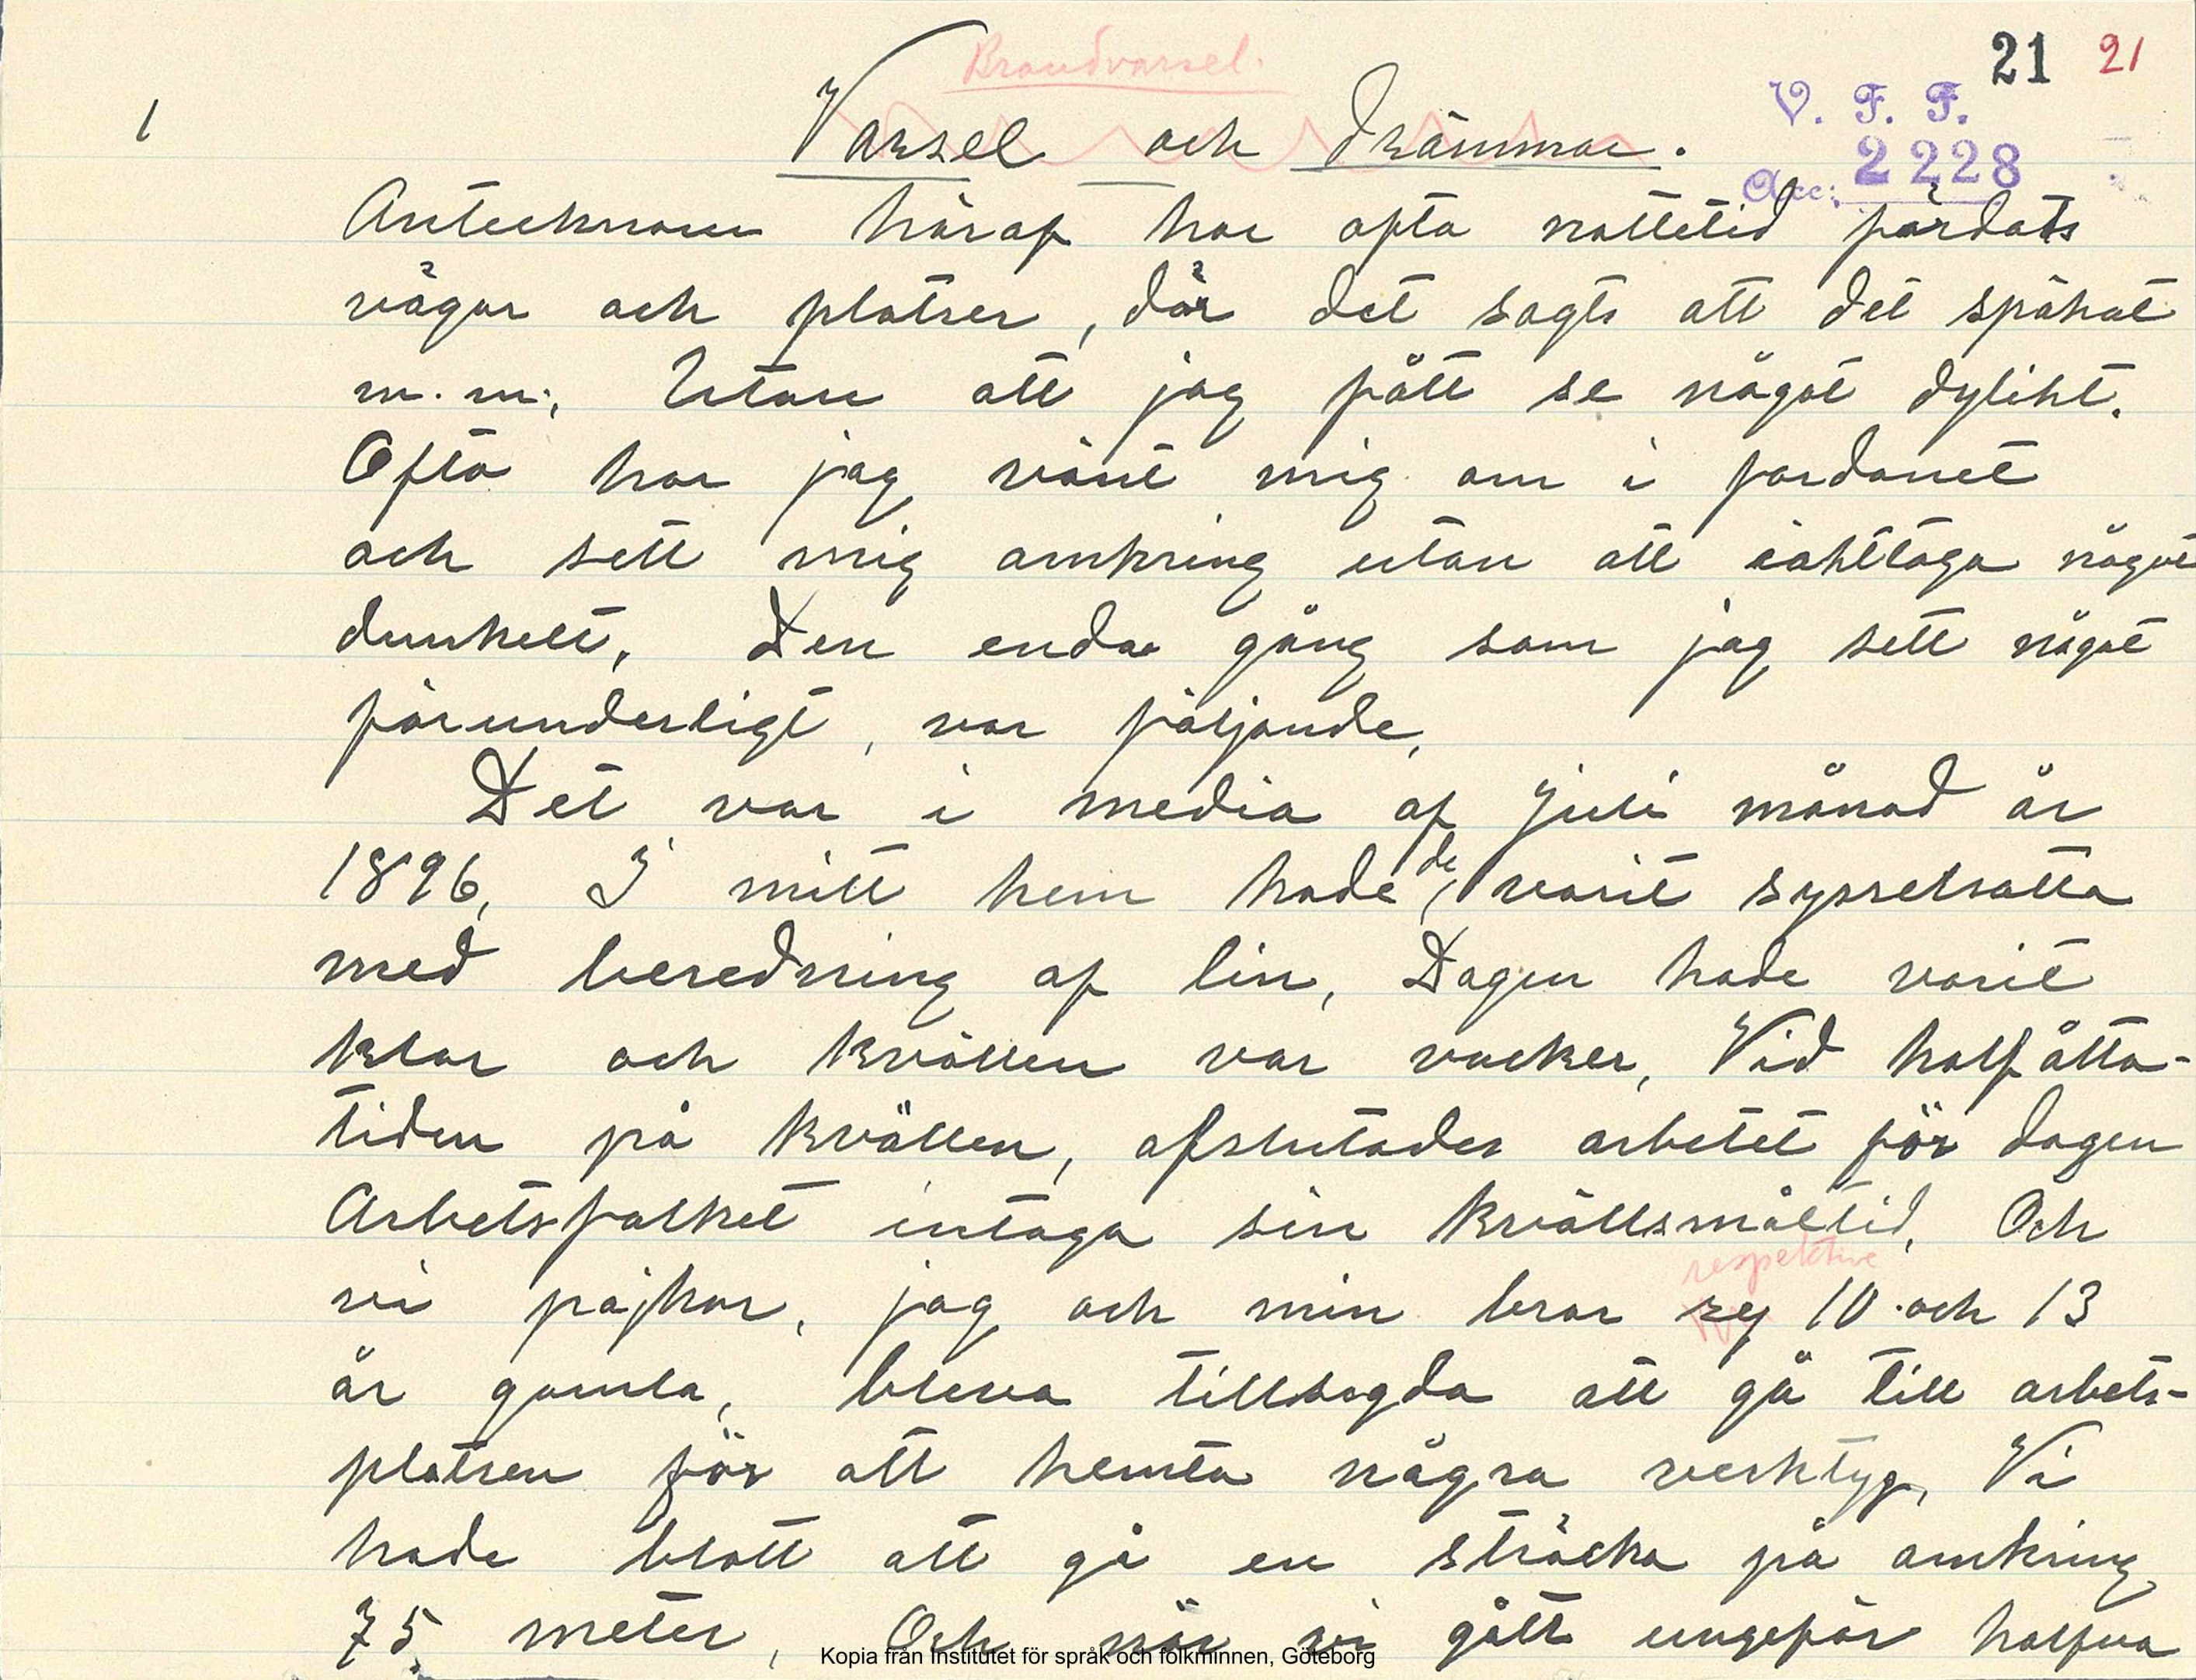 Brandvarsel.
21 21
V. F. F.
1 Varsel och drömmar.
Acc: 2228
Antecknaren häraf har ofta nattetid färdats
vägar och platser, där det sagts att det spökat
m.m; Utan att jag fått se något dylikt.
Ofta har jag vänt mig om i fordonet
och sett mig omkring utan att iakttaga något
dunkelt, Den enda gång som jag sett något
förunderligt, var följande,
Det var i media af juli månad år
1896, I mitt hem hade de varit sysselsatta
med beredning af lin, Dagen hade varit
klar och kvällen var vacker, Vid half åtta-
tiden på kvällen, afslutades arbetet för dagen
Arbetsfolket intoga sin kvällsmåltid, Och
respektive
vi pojkar, jag och min bror 10 och 13
år gamla, bleva tillsagda att gå till arbets-
platsen för att hemta några verktyg, Vi
hade blott att gå en sträcka på omkring
75 meter, Och när vi gått ungefär halfva
Kopia från Institutet för språk och folkminnen, Göteborg